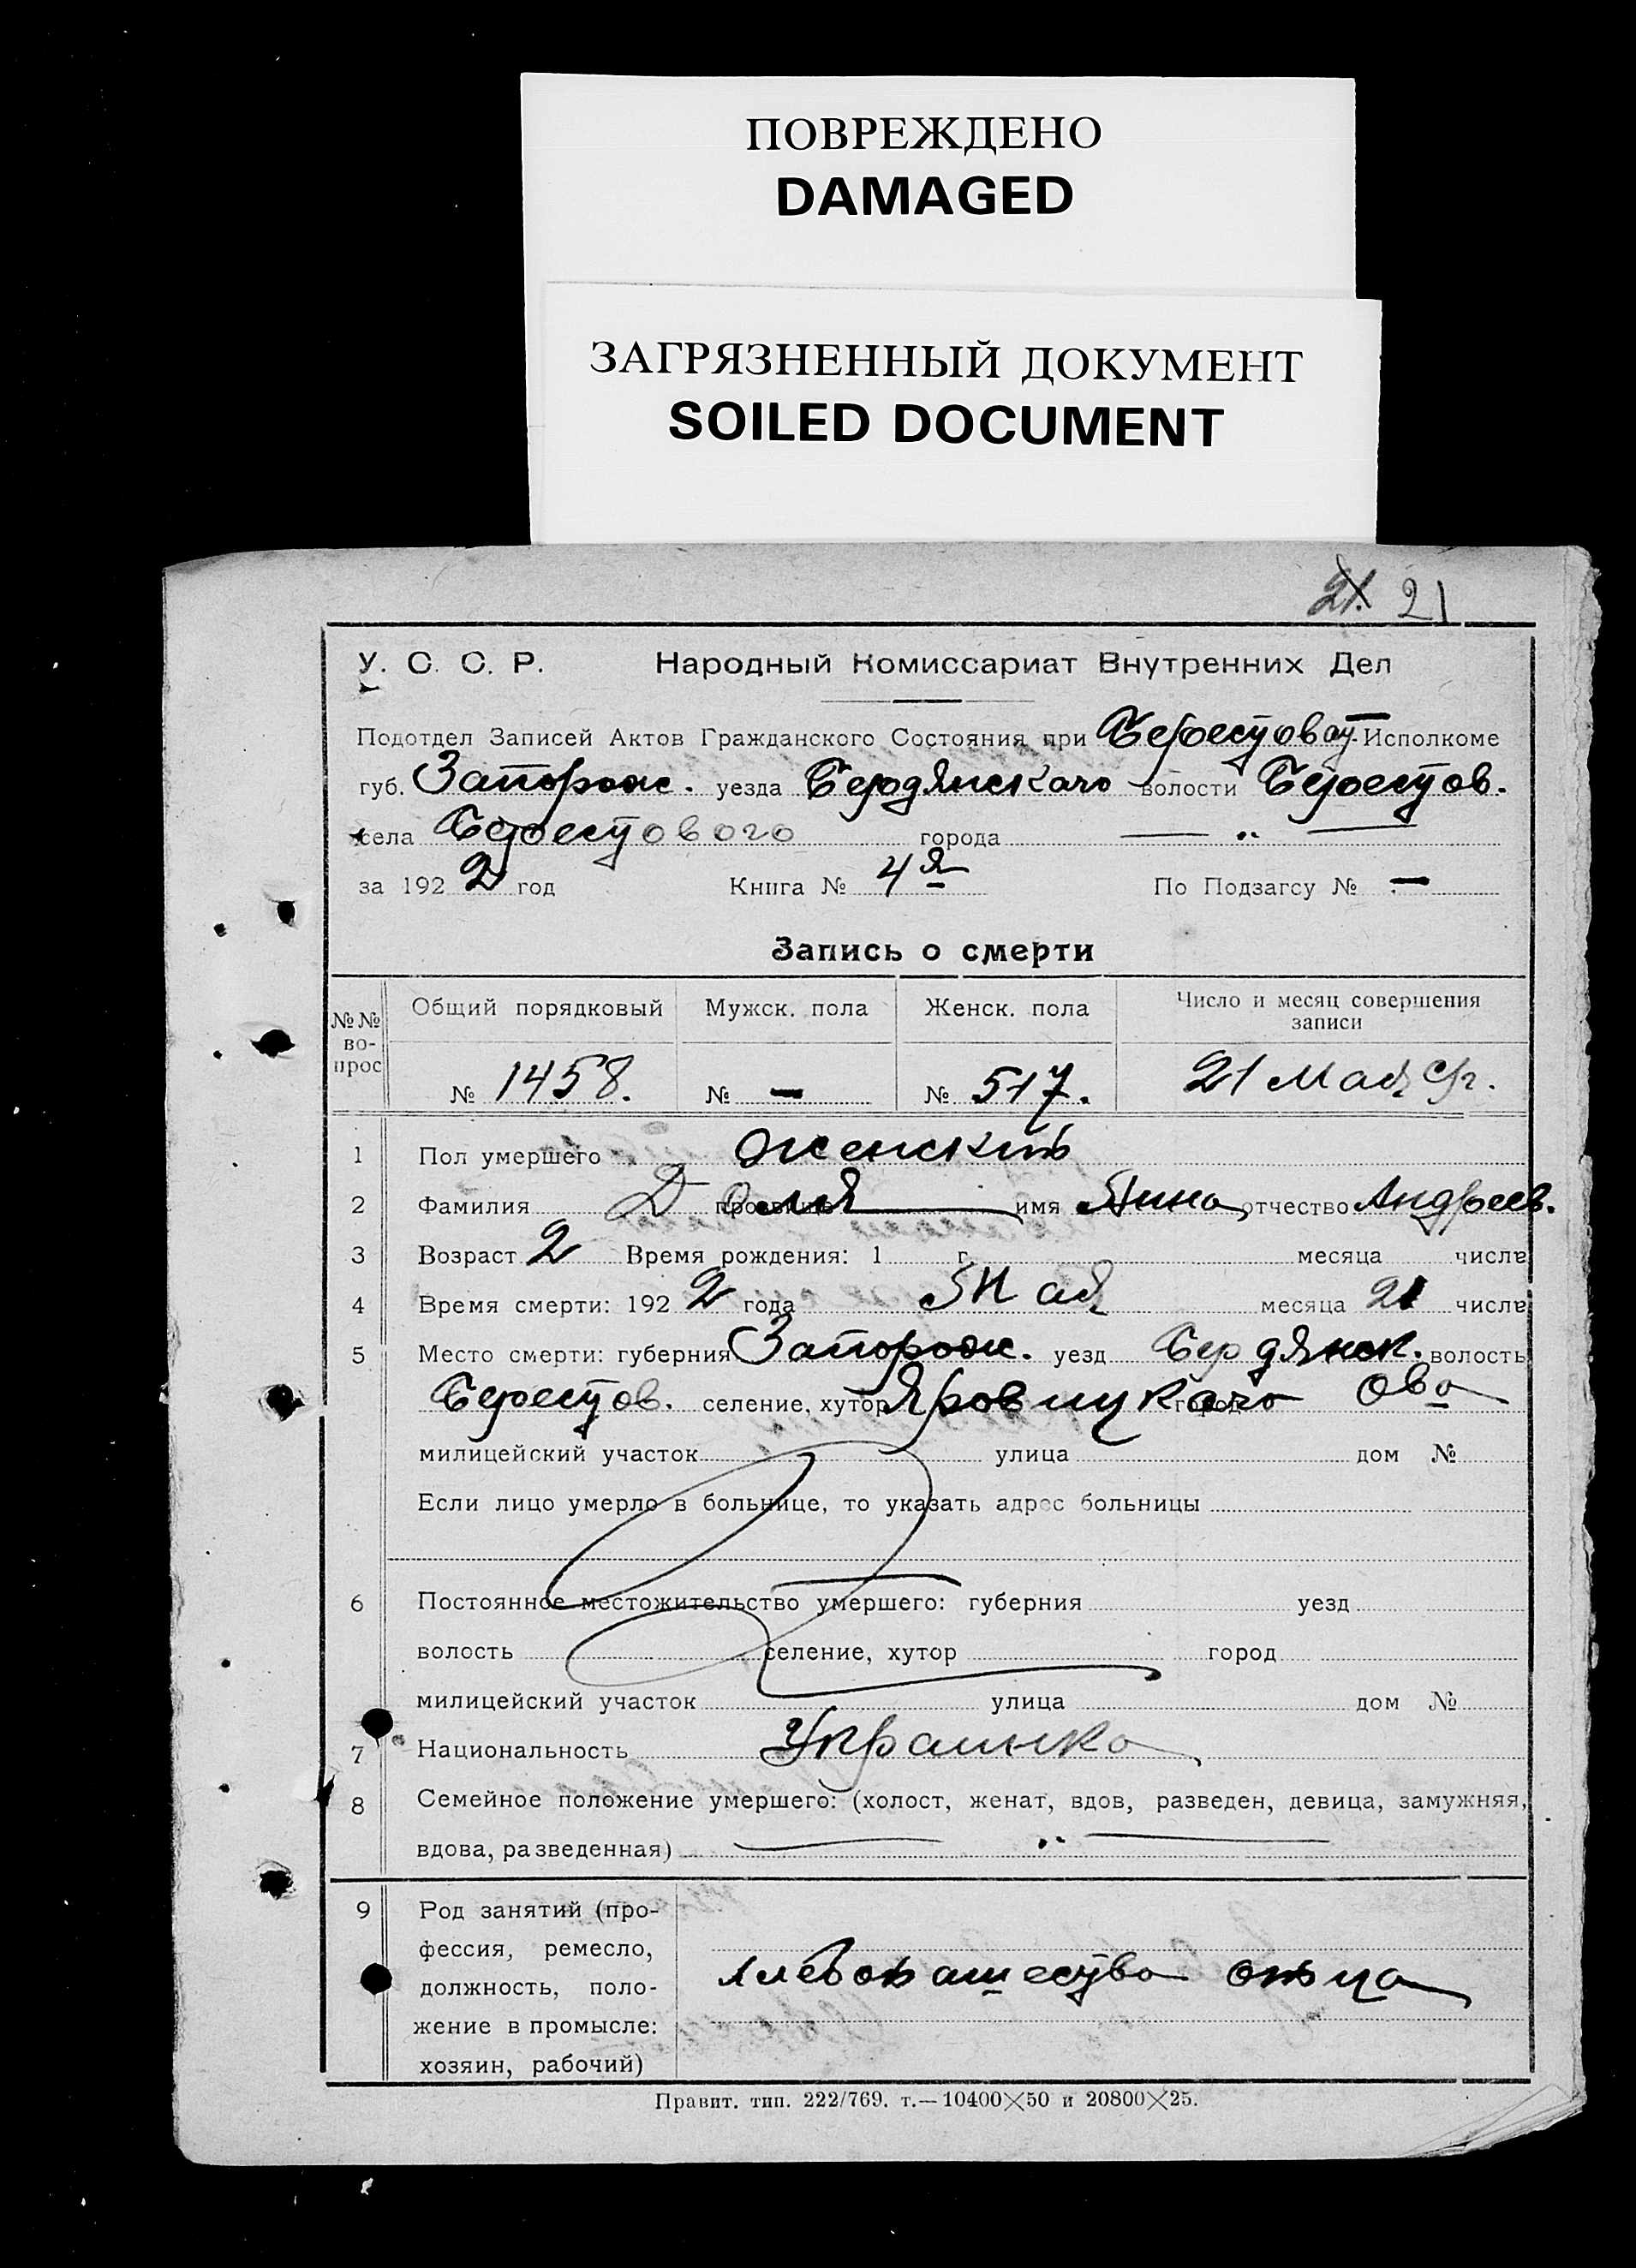 ПОВРЕЖДЕНО
DAMAGED
ЗАГРЯЗНЕННЫЙ ДОКУМЕНТ
SOILED DOCUMENT
21. 21
У. С. С. Р. Народный Комиссариат Внутренних Дел
Подотдел Записей Актов Гражданского Состояния при Берестовом Исполкоме
губ. Запорож. уезда Бердянского волости Берестов.
села Берестового города — „ —
за 1922 год Книга № 4я По Подзагсу № —
Запись о смерти
№№ вопрос Общий порядковый Мужск. пола Женск. пола Число и месяц совершения записи
№ 1458. № — № 517. 21 Мая
1 Пол умершего Женский
2 Фамилия Доля прозвище имя Анна отчество Андреев.
3 Возраст 2 Время рождения: 1 г. месяца числа
4 Время смерти: 1922 года Мая месяца 21 числа
5 Место смерти: губерния Запорож. уезд Бердянск. волость
Берестов. селение, хутор город
милицейский участок улица дом №
Если лицо умерло в больнице, то указать адрес больницы
6 Постоянное местожительство умершего: губерния уезд
волость селение, хутор город
милицейский участок улица дом №
7 Национальность Украинка
8 Семейное положение умершего: (холост, женат, вдов, разведен, девица, замужняя,
вдова, разведенная) — „ —
9 Род занятий (про-
фессия, ремесло,
должность, поло-
жение в промысле:
хозяин, рабочий)
хлебопашество отца
Правит. тип. 222/769. т.—10400×50 и 20800×25.